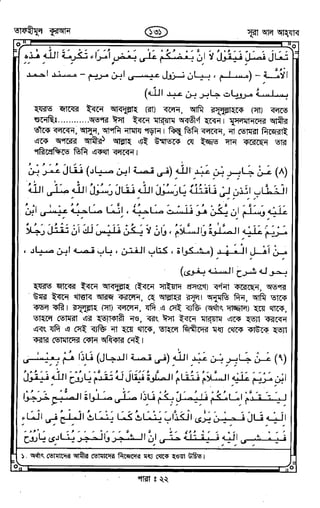 তাফহীমুল কুরআন ১৩১ সূরা আল আহযাব
تعال فصل فيقول لا ان بعضكم على بعض امراء تكرمة الله هذه
الامة - (مسلم، بيان نزول عيسى ابن مريم - مسند احمد
بسلسلة مرويات جابر بن عبد الله)
হযরত জাবের ইবনে আবদুল্লাহ (রা) বলেন, আমি রসূলুল্লাহকে (সা) বলতে
শুনেছি:............অতপর ঈসা ইবনে মারয়াম অবতীর্ণ হবেন। মুসলমানদের আমীর
তাঁকে বলবেন, আসুন, আপনি নামায পড়ান। কিন্তু তিনি বলবেন, না তোমরা নিজেরাই
একে অপরের আমীর১ আল্লাহ এই উম্মতকে যে ইজ্জত দান করেছেন তার
পরিপ্রেক্ষিতে তিনি একথা বলবেন।
(٨) عن جابر بن عبد الله (في قصة ابن صياد) فقال عمر بن
الخطاب ائذن لي فاقتله يا رسول الله فقال رسول الله صلى الله
عليه وسلم ان يكن هو فلست صاحبه، انما صاحبه عيسى ابن
مريم عليه الصلوة والسلام، وان لا يكن فليس لك ان تقتل رجلا
من اهل العهد (مشكواة، كتاب الفتن، باب قصة ابن صياد،
بحوله شرح السنه بغوى)
হযরত জাবের ইবনে আবদুল্লাহ (ইবনে সাইয়াদ প্রসংগে) বর্ণনা করেছেন, অতপর
উমর ইবনে খাত্তাব আরজ করলেন, হে আল্লাহর রসূল! অনুমতি দিন, আমি তাকে
কতল করি। রসূলুল্লাহ (সা) বললেন, যদি এ সেই ব্যক্তি (অর্থাৎ দাজ্জাল) হয়ে থাকে,
তাহলে তোমরা এর হত্যাকারী নও, বরং ঈসা ইবনে মারয়াম একে হত্যা করবেন
এবং যদি এ সেই ব্যক্তি না হয়ে থাকে, তাহলে জিম্মীদের মধ্য থেকে কাউকে হত্যা
করার তোমাদের কোন অধিকার নেই।
(٩) عن جابر بن عبد الله (في قصة الدجال) فاذا هم بعيسى
ابن مريم عليه السلام فتقام الصلوة فيقال له تقدم يا روح الله فيقول
ليتقدم امامكم فليصل بكم فاذا صلى صلوة الصبح خرجوا
اليه قال فحين يرى الكذاب ينماث كما ينماث الملح في الماء
فيمشى اليه فيقتله حتى ان الشجر والحجر ينادى يا روح
১. অর্থাৎ তোমাদের আমীর তোমাদের নিজেদের মধ্য থেকে হওয়া উচিত।
পারা : ২২